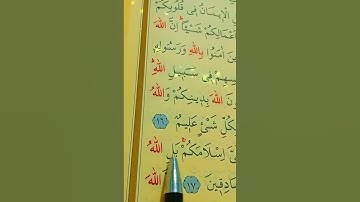 الْاِيمَانُ فِى قُلُوبِكُمْ
اَعْمَالِكُمْ شَيْـًٔا اِنَّ اللّٰهَ
اٰمَنُوا بِاللّٰهِ وَرَسُولِهِ
فِى سَبِيلِ اللّٰهِ
اللّٰهَ بِدِينِكُمْ وَاللّٰهُ
بِكُلِّ شَىْءٍ عَلِيمٌ ﴿١٦﴾
اِسْلَامَكُمْ بَلِ اللّٰهُ
صَادِقِينَ ﴿١٧﴾ اللّٰهَ